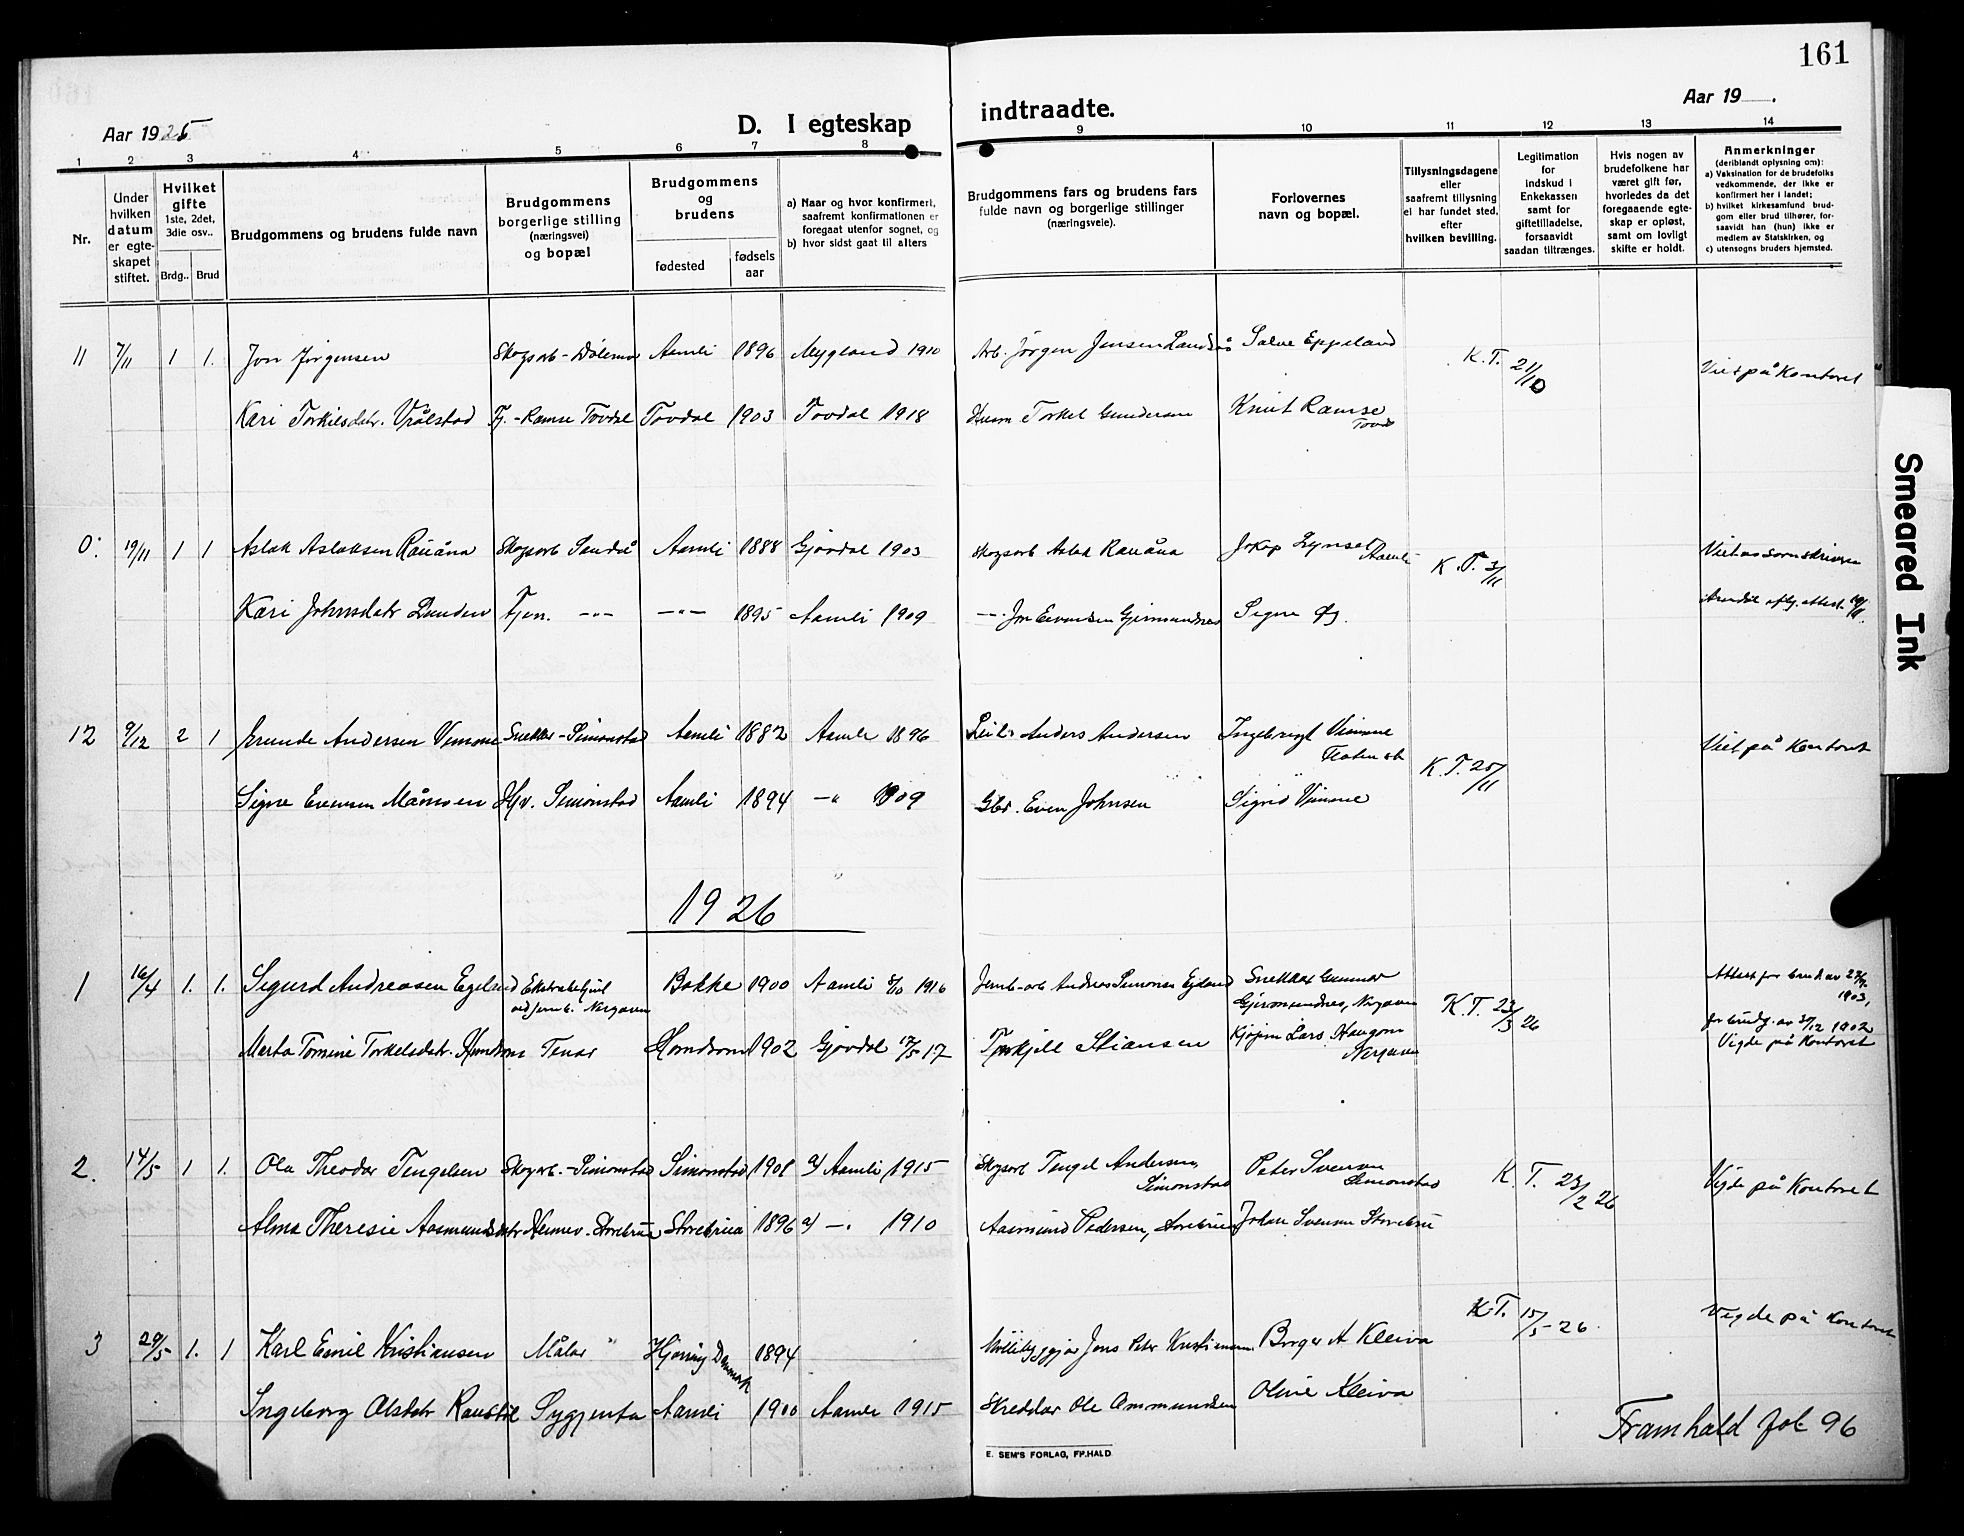 161
Aar 1925
D. I egteskap indtraadte.
Aar 19 .
1 2 3 4 5 6 7 8 9 10 11 12 13 14
Nr.
Under hvilken datum er egteskapet stiftet.
Hvilket gifte 1ste, 2det, 3die osv..
Brdg.. Brud
Brudgommens og brudens fulde navn
Brudgommens borgerlige stilling (næringsvei) og bopæl
Brudgommens og brudens
fødested
fødsels aar
a) Naar og hvor konfirmert, saafremt konfirmationen er foregaat utenfor sognet, og
b) hvor sidst gaat til alters
Brudgommens fars og brudens fars fulde navn og borgerlige stillinger (næringsveie).
Forlovernes navn og bopæl.
Tillysningsdagene eller saafremt tillysning ei har fundet sted, efter hvilken bevilling.
Legitimation for indskud i Enkekassen samt for giftetilladelse, forsaavidt saadan tiltrænges.
Hvis nogen av brudefolkene har været gift før, hvorledes da det foregaaende egteskap er opløst, samt om lovligt skifte er holdt.
Anmerkninger (deriblandt oplysning om):
a) Vaksination for de brudefolks vedkommende, der ikke er konfirmert her i landet;
b) hvilket kirkesamfund brudgom eller brud tilhører, forsaavidt han (hun) ikke er medlem av Statskirken, og
c) utensogns bruders hjemsted.
11 7/11 1 1. Jon Jørgensen Skogsarb - Dølemo Aamli 1896 Mygland 1910 Arb. Jörgen Jensen Salve Eppeland K.T. 21/10 Viet på Kontoret
Kari Torkilsdatr. Vrålstad Tj. - Ramse Tovdal Tovdal 1903 Tovdal 1918 Husm Torkel Gundersen Knut Ramse Tovd
0. 19/11 1 1 Aslak Aslaksen Rauåna Skogsarb Aamli 1888 Gjövdal 1903 Skogsarb Aslak Rauåna Lynset Aamli K.T. 3/11 Viet av sorenskriveren
Kari Johnsdatr Tjen. -"- -"- 1895 Aamli 1909 -"- Jon Evensen Signe Arendal attest 19/11.
12 9/12 2 1 Andersen Vimme Snekker - Simonstad Aamli 1882 Aamli 1896 Anders Andersen Ingebrigt Vimme K.T. 25/11 Viet på Kontoret
Signe Evensen Hjv. Simonstad Aamli 1894 -"- 1909 Gbr. Even Johnsen Sigrid Vimme
1926
1 16/4 1. 1. Sigurd Andreasen Egeland Bokke 1900 Aamli 8/10 1916 Jernb-arb Andreas Simonsen Snekkar Gunnar Gjermundnes, Nergaren K.T. 23/3 26 Attest for brud av 1903,
Marta Tomine Torkelsdatr. Tenar 1902 Gjøvdal 17/5 17 Torkjell Stiansen Lars Haugom for brudg. av 1902 Vigde på Kontoret
2. 14/5 1 1. Ola Theodor Tengelsen Skogarb. - Simonstad Simonstad 1901 a/ Aamli 1915 Skogsarb Tengel Andersen, Simonstad Peter Svensen Simonstad K.T. 23/2 26 Vigde på Kontoret
Alma Theresie Aasmundsdatr Heimev. Storebrua Storebrua 1896 a/ -"- 1910 Aasmund Pedersen, Storebrua Johan Svensen Storebru
3 29/5 1. 1 Karl Emil Kristiansen Målar Hjørring Danmark 1894 Möllebyggjar Jens Peter Kristiansen Borger A Kleiva K.T. 15/5 - 26. Vigde på Kontoret
Ingeborg Olsdatr Sygjenta Aamli 1900 Aamli 1915 Skreddar Ole Ommundsen Oline Kleiva
Framhald fol 96
E. SEM'S FORLAG, FR.HALD
Smeared Ink